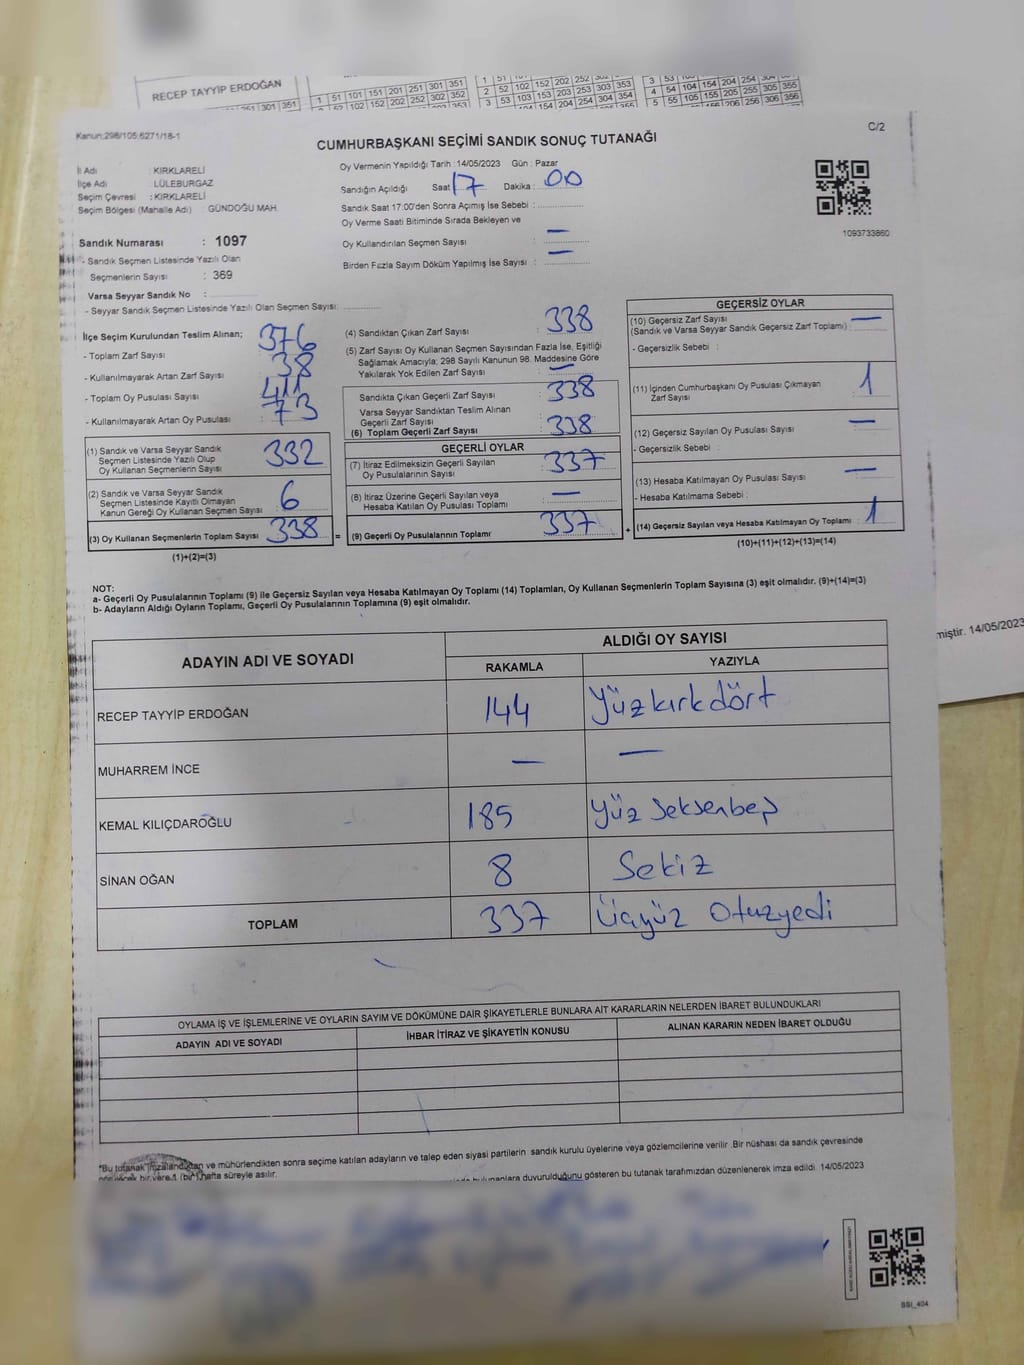 RECEP TAYYİP ERDOĞAN
1 51 101 151 201 251 301 351
102 152 202 252 302 352
2 52 102 152 202 252
3 53 103 153 203 253 303 353
154 204 254 304 354
4 54 104 154 204 254 304 354
5 55 105 155 205 255 305 355
206 256 306 356
Kanun:298/105;6271/18-1
C/2
CUMHURBAŞKANI SEÇİMİ SANDIK SONUÇ TUTANAĞI
İl Adı : KIRKLARELİ
İlçe Adı : LÜLEBURGAZ
Seçim Çevresi : KIRKLARELİ
Seçim Bölgesi (Mahalle Adı) : GÜNDOĞU MAH.
Oy Vermenin Yapıldığı Tarih : 14/05/2023 Gün : Pazar
Sandığın Açıldığı Saat 17 Dakika : 00
Sandık Saat 17:00'den Sonra Açımış İse Sebebi :
Oy Verme Saati Bitiminde Sırada Bekleyen ve
Oy Kullandırılan Seçmen Sayısı : —
Birden Fazla Sayım Döküm Yapılmış İse Sayısı : —
1093733860
Sandık Numarası : 1097
- Sandık Seçmen Listesinde Yazılı Olan
Seçmenlerin Sayısı : 369
Varsa Seyyar Sandık No :
- Seyyar Sandık Seçmen Listesinde Yazılı Olan Seçmen Sayısı:
İlçe Seçim Kurulundan Teslim Alınan;
- Toplam Zarf Sayısı : 376
- Kullanılmayarak Artan Zarf Sayısı : 38
- Toplam Oy Pusulası Sayısı : 411
- Kullanılmayarak Artan Oy Pusulası : 73
(1) Sandık ve Varsa Seyyar Sandık
Seçmen Listesinde Yazılı Olup
Oy Kullanan Seçmenlerin Sayısı : 332
(2) Sandık ve Varsa Seyyar Sandık
Seçmen Listesinde Kayıtlı Olmayan
Kanun Gereği Oy Kullanan Seçmen Sayısı : 6
(3) Oy Kullanan Seçmenlerin Toplam Sayısı : 338
(1)+(2)=(3)
=
(4) Sandıktan Çıkan Zarf Sayısı : 338
(5) Zarf Sayısı Oy Kullanan Seçmen Sayısından Fazla İse, Eşitliği
Sağlamak Amacıyla; 298 Sayılı Kanunun 98. Maddesine Göre
Yakılarak Yok Edilen Zarf Sayısı : —
Sandıkta Çıkan Geçerli Zarf Sayısı : 338
Varsa Seyyar Sandıktan Teslim Alınan
Geçerli Zarf Sayısı :
(6) Toplam Geçerli Zarf Sayısı : 338
GEÇERLİ OYLAR
(7) İtiraz Edilmeksizin Geçerli Sayılan
Oy Pusulalarının Sayısı : 337
(8) İtiraz Üzerine Geçerli Sayılan veya
Hesaba Katılan Oy Pusulası Toplamı : —
(9) Geçerli Oy Pusulalarının Toplamı : 337
+
GEÇERSİZ OYLAR
(10) Geçersiz Zarf Sayısı
(Sandık ve Varsa Seyyar Sandık Geçersiz Zarf Toplamı) : —
- Geçersizlik Sebebi :
(11) İçinden Cumhurbaşkanı Oy Pusulası Çıkmayan
Zarf Sayısı : 1
(12) Geçersiz Sayılan Oy Pusulası Sayısı : —
- Geçersizlik Sebebi :
(13) Hesaba Katılmayan Oy Pusulası Sayısı : —
- Hesaba Katılmama Sebebi :
(14) Geçersiz Sayılan veya Hesaba Katılmayan Oy Toplamı : 1
(10)+(11)+(12)+(13)=(14)
NOT:
a- Geçerli Oy Pusulalarının Toplamı (9) ile Geçersiz Sayılan veya Hesaba Katılmayan Oy Toplamı (14) Toplamları, Oy Kullanan Seçmenlerin Toplam Sayısına (3) eşit olmalıdır. (9)+(14)=(3)
b- Adayların Aldığı Oyların Toplamı, Geçerli Oy Pusulalarının Toplamına (9) eşit olmalıdır.
miştir. 14/05/2023
ADAYIN ADI VE SOYADI
ALDIĞI OY SAYISI
RAKAMLA YAZIYLA
RECEP TAYYİP ERDOĞAN 144 Yüzkırkdört
MUHARREM İNCE — —
KEMAL KILIÇDAROĞLU 185 Yüz Seksenbeş
SİNAN OĞAN 8 Sekiz
TOPLAM 337 Üçyüz Otuzyedi
OYLAMA İŞ VE İŞLEMLERİNE VE OYLARIN SAYIM VE DÖKÜMÜNE DAİR ŞİKAYETLERLE BUNLARA AİT KARARLARIN NELERDEN İBARET BULUNDUKLARI
ADAYIN ADI VE SOYADI İHBAR İTİRAZ VE ŞİKAYETİN KONUSU ALINAN KARARIN NEDEN İBARET OLDUĞU
*Bu tutanak imzalandıktan ve mühürlendikten sonra seçime katılan adayların ve talep eden siyasi partilerin sandık kurulu üyelerine veya gözlemcilerine verilir .Bir nüshası da sandık çevresinde
bir yere 1 (bir) hafta süreyle asılır.
bulunanlara duyurulduğunu gösteren bu tutanak tarafımızdan düzenlenerek imza edildi. 14/05/2023
BSI_404